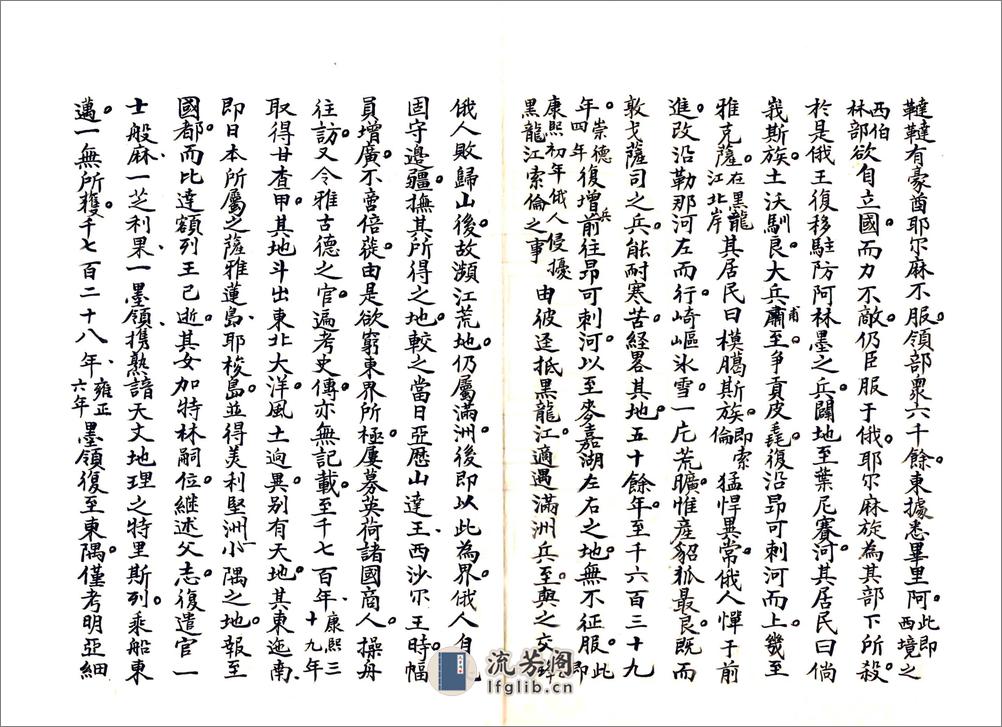 韃韃有豪酋耶尔麻不服領部衆六千餘。東據悉畢里阿。此即西境之
西伯林部欲自立國。而力不敵仍臣服于俄。耶尔麻旋為其部下所殺。
於是俄王復移駐防阿林墨之兵。闢地至葉尼賽河。其居民曰倘
我斯族。土沃馴良。大兵甫至爭貢皮毳。復沿昂可剌河而上。幾至
雅克薩。在黑龍江北岸其居民曰模臈斯族。即索倫猛悍異常。俄人憚于前
進。改沿勒那河左而行。崎嶇氷雪一片荒曠。惟産貂狐最良。既而
敦戈薩司之兵。能耐寒苦。経畧其地。五十餘年。至千六百三十九
年。崇德四年復增兵前往昂可刺河。以至麥嘉湖左右之地。無不征服。此即
康熙初年俄人侵擾黑龍江索倫之事由彼逕抵黑龍江。適遇滿洲兵至。與之交
俄人敗歸山後。故瀕江荒地。仍屬滿洲。後即以此為界。俄人自
固守邊疆。撫其所得之地。較之當日亞歷山達王、西沙尔王時。幅
員增廣。不啻倍蓰。由是欲窮東界所極。屢募英荷諸國商人。操舟
往訪。又令雅古德之官。遍考史傳。亦無記載。至千七百年、康熙三十九年
取得廿查甲。其地斗出東北大洋。風土逈異。别有天地。其東迤南
即日本所屬之薩雅蓮島、耶梭島。並得美利堅洲一小隅之地。報至
國都。而比達額列王已逝。其女加特林嗣位。継述父志。復遣官一
士般麻、一芝利果、一墨領、携熟諳天文地理之特里斯列。乘船東
邁。一無所獲。千七百二十八年、雍正六年墨領復至東隅。僅考明亞細
流芳阁
lfglib.cn